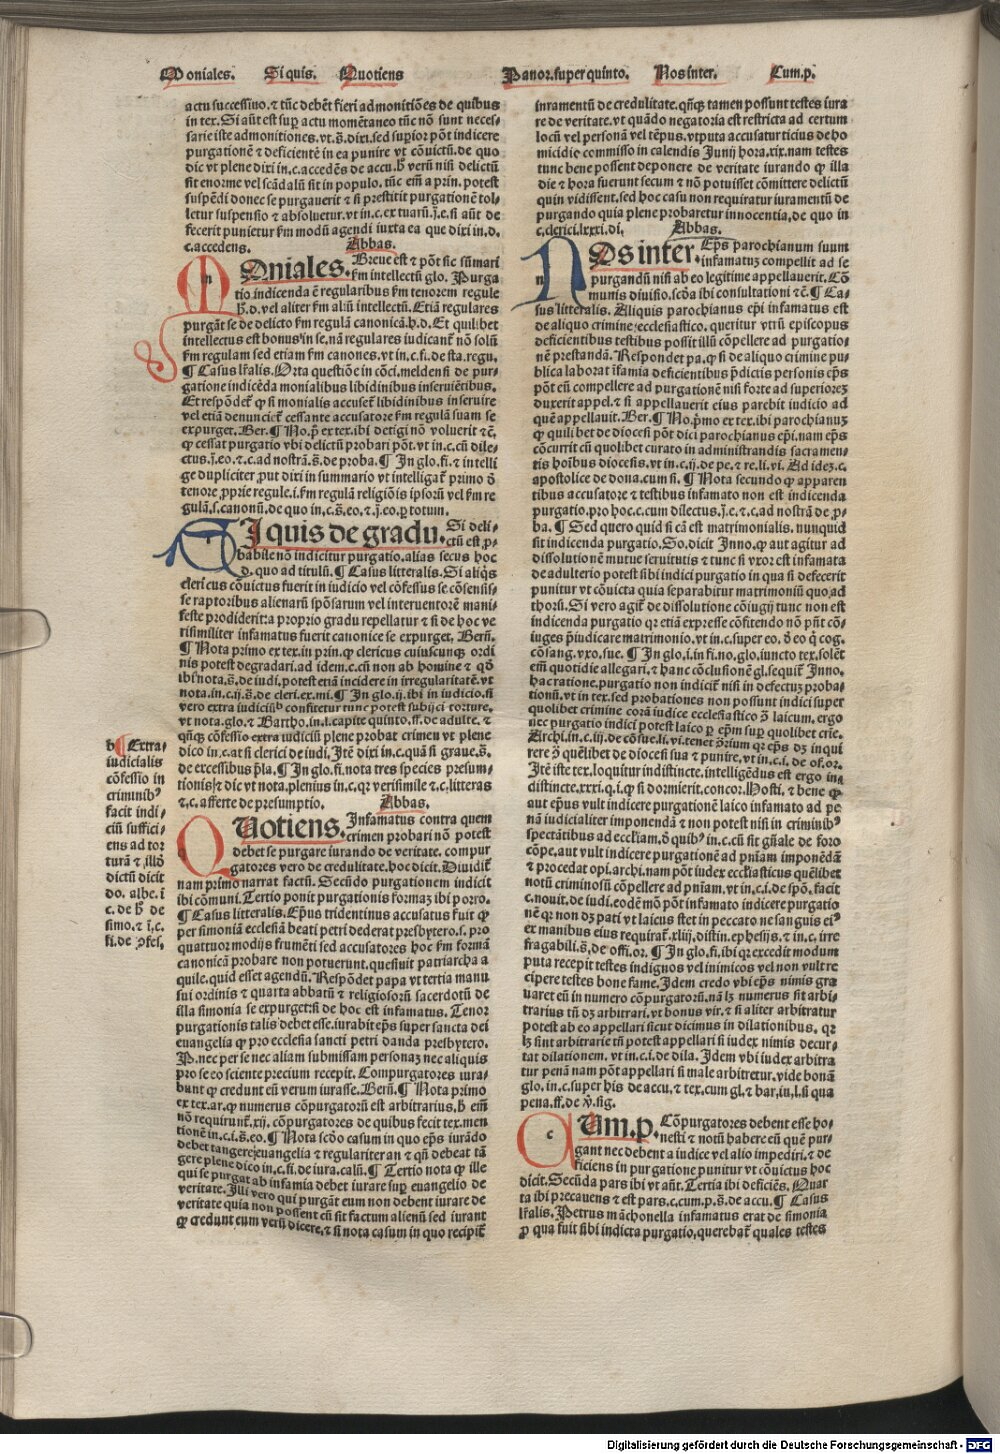 Moniales. Si quis. Quotiens
Panor. super quinto. Nos inter. Cum.p.
actu successiuo. ⁊ tūc debēt fieri admonitiōes de quibus
in tex. Si aūt est sup actu momētaneo tūc nō sunt neces-
sarie iste admonitiones. vt.s̄. dixi. sed supior pōt indicere
purgationē ⁊ deficientē in ea punire vt cōuictū. de quo
dic vt plene dixi in.c. accedēs de accu. h̄ verū nisi delictū
sit enorme vel scādalū sit in populo. tūc em̄ a prin. potest
suspēdi donec se purgauerit ⁊ si prestitit purgationē tol-
letur suspensio ⁊ absoluetur. vt in.c. ex tuarū.j.e. si aūt de
fecerit punietur ẜm modū agendi iuxta ea que dixi in.d.
c. accedens. Abbas.
Moniales. Breue est ⁊ pōt sic sūmari
ẜm intellectū glo. Purga
tio indicenda ē regularibus ẜm tenorem regule
h̄.d. vel aliter ẜm aliū intellectū. Etiā regulares
purgāt se de delicto ẜm regulā canonicā.h.d. Et quilibet
intellectus est bonus in se. nā regulares iudicant̄ nō solū
ẜm regulam sed etiam ẜm canones. vt in.c. fi. de sta. regu.
¶ Casus lr̄alis. Orta questiōe in cōci. meldensi de pur-
gatione indicēda monialibus libidinibus inseruiētibus.
Et respōdet̄ ꝙ si monialis accuset̄ libidinibus inseruire
vel etiā denunciet̄ cessante accusatore ẜm regulā suam se
expurget. Ber. ¶ No. p̄ ex tex. ibi detigi nō voluerit ⁊c̄.
ꝙ cessat purgatio vbi delictū probari pōt. vt in.c. cū dile-
ctus.j.eo.⁊.c. ad nostrā.s̄. de proba. ¶ In glo. fi. ⁊ intelli
ge dupliciter, put dixi in summario vt intelligat̄ primo ō
tenore, pprie regule.i. ẜm regulā religiōis ipsorū vel ẜm re
gulā.s. canonū. de quo in.c.s̄.eo.⁊.j.eo.ꝑ totum.
Si quis de gradu. Si deli-
ctū est ꝓ-
babile nō indicitur purgatio. alias secus hoc
d. quo ad titulū. ¶ Casus litteralis. Si aliq̄s
clericus cōuictus fuerit in iudicio vel cōfessus se cōsensis-
se raptoribus alienarū spōsarum vel interuentorē mani-
feste prodiderit: a proprio gradu repellatur ⁊ si de hoc ve
risimiliter infamatus fuerit canonice se expurget. Bern̄.
¶ Nota primo ex tex. in prin. ꝙ clericus cuiuscunqꝫ ordi
nis potest degradari. ad idem.c. cū non ab homine ⁊ qō
ibi nota.s̄. de iudi. potest etiā incidere in irregularitatē. vt
nota. in.c.ij.s̄. de cleri. ex. mi. ¶ In glo.ij. ibi in iudicio. si
vero extra iudiciū confitetur tunc potest subijci torture.
vt nota. glo. ⁊ Bartho. in.l. capite quinto. ff. de adulte. ⁊
qn̄qꝫ cōfessio extra iudiciū plene probat crimen vt plene
dico in.c. at si clerici de iudi. Itē dixi in.c. quā si graue.s̄.
de excessibus p̄la. ¶ In glo. fi. nota tres species presum-
tionis ⁊ dic vt nota. plenius in.c. qꝛ verisimile ⁊.c. litteras
⁊.c. afferte de presumptio. Abbas.
b Extra-
iudicialis
cōfessio in
criminibꝰ
facit indi-
ciū suffici-
ens ad tor
turā ⁊ illō
dictū dicit
do. albe. ī
c. de h̄ de
simo. ⁊ ī.c.
fi. de ꝯfes.
Quotiens. Infamatus contra quem
crimen probari nō potest
debet se purgare iurando de veritate. compur
gatores vero de credulitate. hoc dicit. Diuidit̄
nam primo narrat factū. Secūdo purgationem indicit
ibi cōmuni. Tertio ponit purgationis formaꝫ ibi porro.
¶ Casus litteralis. Ep̄us tridentinus accusatus fuit ꝙ
per simoniā ecclesiā beati petri dederat presbytero.s. pro
quattuor modijs frumēti sed accusatores hoc ẜm formā
canonicā probare non potuerunt. quesiuit patriarcha a
quile. quid esset agendū. Respōdet papa vt tertia manu
sui ordinis ⁊ quarta abbatū ⁊ religiosorū sacerdotū de
illa simonia se expurget: si de hoc est infamatus. Tenor
purgationis talis debet esse. iurabit ep̄s super sancta dei
euangelia ꝙ pro ecclesia sancti petri danda presbytero.
P. nec per se nec aliam submissam personaꝫ nec aliquis
pro se eo sciente precium recepit. Compurgatores iura-
bunt ꝙ credunt eū verum iurasse. Bern̄. ¶ Nota primo
ex tex. ar. ꝙ numerus cōpurgatorū est arbitrarius. h̄ em̄
nō requirunt̄.xij. cōpurgatores de quibus fecit tex. men
tionē in.c.i.s̄.eo. ¶ Nota scd̄o casum in quo ep̄s iurādo
debet tangere euangelia ⁊ regulariter an ⁊ qn̄ debeat tā
gere plene dico in.c. fi. de iura. calū. ¶ Tertio nota ꝙ ille
qui se purgat ab infamia debet iurare sup euangelio de
veritate. Illi vero qui purgāt eum non debent iurare de
veritate quia non possent cū sit factum alienū sed iurant
ꝙ credunt eum verū dicere. ⁊ si nota casum in quo recipit̄
iuramentū de credulitate. qn̄qꝫ tamen possunt testes iura
re de veritate. vt quādo negatoria est restricta ad certum
locū vel personā vel tēpus. vtputa accusatur ticius de ho
micidio commisso in calendis Junij hora.xix. nam testes
tunc bene possent deponere de veritate iurando ꝙ illa
die ⁊ hora fuerunt secum ⁊ nō potuisset cōmittere delictū
quin vidissent. sed hoc casu non requiratur iuramentū de
purgando quia plene probaretur innocentia. de quo in
c. clerici.lxxxi.di. Abbas.
Nos inter. Ep̄s parochianum suum
infamatuꝫ compellit ad se
purgandū nisi ab eo legitime appellauerit. Cō
munis diuisio. scd̄a ibi consultationi ⁊c̄. ¶ Ca-
sus litteralis. Aliquis parochianus ep̄i infamatus est
de aliquo crimine ecclesiastico. queritur vtrū episcopus
deficientibus testibus possit illū cōpellere ad purgatio-
nē prestandā. Respondet pa. ꝙ si de aliquo crimine pu-
blica laborat īfamia deficientibus p̄dictis personis ep̄s
pōt eū compellere ad purgationē nisi forte ad superioreꝫ
duxerit appel. ⁊ si appellauerit eius parebit iudicio ad
quē appellauit. Ber. ¶ No. p̄mo ex tex. ibi parochianuꝫ
ꝙ quilibet de diocesi pōt dici parochianus ep̄i. nam ep̄s
cōcurrit cū quolibet curato in administrandis sacramen-
tis hoībus diocesis. vt in.c.ij. de pe. ⁊ re. li. vi. Ad ideꝫ.c.
apostolice de dona. cum si. ¶ Nota secundo ꝙ apparen
tibus accusatore ⁊ testibus infamato non est indicenda
purgatio. pro hoc.c. cum dilectus.j.e.⁊.c. ad nostrā de ꝓ-
ba. ¶ Sed quero quid si cā est matrimonialis. nunquid
sit indicenda purgatio. So. dicit Inno. ꝙ aut agitur ad
dissolutionē mutue seruitutis ⁊ tunc si vxor est infamata
de adulterio potest sibi indici purgatio in qua si defecerit
punitur vt cōuicta quia separabitur matrimoniū quo ad
thorū. Si vero agit̄ de dissolutione cōiugij tunc non est
indicenda purgatio qꝛ etiā expresse cōfitendo nō pn̄t cō-
iuges p̄iudicare matrimonio. vt in.c. super eo. d̄ eo q̇ cog.
cōsang. vxo. sue. ¶ In glo.i. in fi. no. glo. iuncto tex. solēt
em̄ quotidie allegari. ⁊ hanc cōclusionē gl. sequit̄ Inno.
hac ratione. purgatio non indicit̄ nisi in defectuꝫ proba-
tionū. vt in tex. sed probationes non possunt indici super
quolibet crimine corā iudice ecclesiastico ꝯ̄ laicum. ergo
nec purgatio indici potest laico ꝑ ep̄m sup quolibet crīe.
Archi. in.c.iij. de cōsue. li. vi. tenet ꝯ̄rium qꝛ ep̄s dꝫ inqui
rere ꝯ̄ quēlibet de diocesi sua ⁊ punire. vt in.c.i. de of. or.
Itē iste tex. loquitur indistincte. intelligēdus est ergo in-
distincte.xxxi.q.i. ꝙ si dormierit. concor. Hosti. ⁊ bene ꝙ
aut ep̄us vult indicere purgationē laico infamato ad pe
nā iudicialiter imponendā ⁊ non potest nisi in criminibꝰ
spectātibus ad eccl̄iam. d̄ quibꝰ in.c. cū sit gn̄ale de foro
cōpe. aut vult indicere purgationē ad pn̄iam imponēdā
⁊ procedat opi. archi. nam pōt iudex eccl̄iasticus quēlibet
notū criminosū cōpellere ad pn̄iam. vt in.c.i. de spō. facit
c. nouit. de iudi. eodē mō pōt infamato indicere purgatio
nē qꝛ non dꝫ pati vt laicus stet in peccato ne sanguis eiꝰ
ex manibus eius requirat̄.xliij. distin. ephesijs. ⁊ in.c. irre
fragabili.s̄. de offi. or. ¶ In glo. fi. ibi qꝛ excedit modum
puta recepit testes indignos vel inimicos vel non vult re
cipere testes bone fame. Idem credo vbi ep̄s nimis gra
uaret eū in numero cōpurgatorū. nā lꝫ numerus sit arbi-
trarius tn̄ dꝫ arbitrari. vt bonus vir. ⁊ si aliter arbitratur
potest ab eo appellari sicut dicimus in dilationibus. qꝛ
lꝫ sint arbitrarie tn̄ potest appellari si iudex nimis decur-
tat dilationem. vt in.c.i. de dila. Idem vbi iudex arbitra
tur penā nam pōt appellari si male arbitretur. vide bonā
glo. in.c. super his de accu. ⁊ tex. cum gl. ⁊ bar. in.l. si qua
pena. ff. de v̄. sig.
Cum.p. Cōpurgatores debent esse ho-
nesti ⁊ notū habere eū quē pur-
gant nec debent a iudice vel alio impediri. ⁊ de
ficiens in purgatione punitur vt cōuictus hoc
dicit. Secūda pars ibi vt aūt. Tertia ibi deficiēs. Quar
ta ibi precauens ⁊ est pars.c. cum.p.s̄. de accu. ¶ Casus
lr̄alis. Petrus māchonella infamatus erat de simonia
ꝓ qua fuit sibi indicta purgatio. querebat̄ quales testes
Digitalisierung gefördert durch die Deutsche Forschungsgemeinschaft - DFG